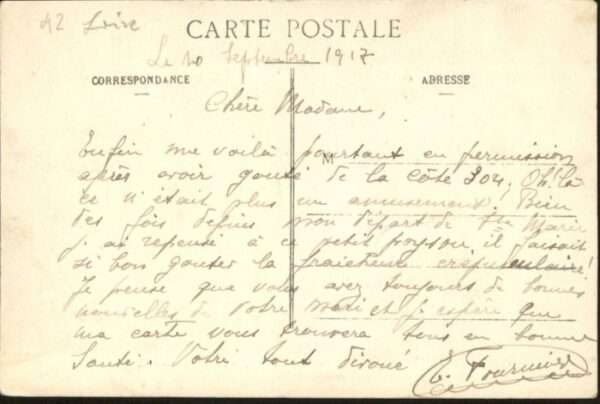 42 Loire
CARTE POSTALE
Le 20 Septembre 1917
CORRESPONDANCE
ADRESSE
Chère Madame,
M
Enfin me voilà pourtant en permission
après avoir gouté de la côte 304. Oh! là
ce n'était plus un amusement. Bien
des fois depuis mon départ de Ste Marie
j'ai repensé à ce petit poysson il faisait
si bon gouter la fraicheur crépusculaire!
Je pense que vous avez toujours de bonnes
nouvelles de votre mari et j'espère que
ma carte vous trouvera tous en bonne
Santé. Votre tout dévoué
Fournier